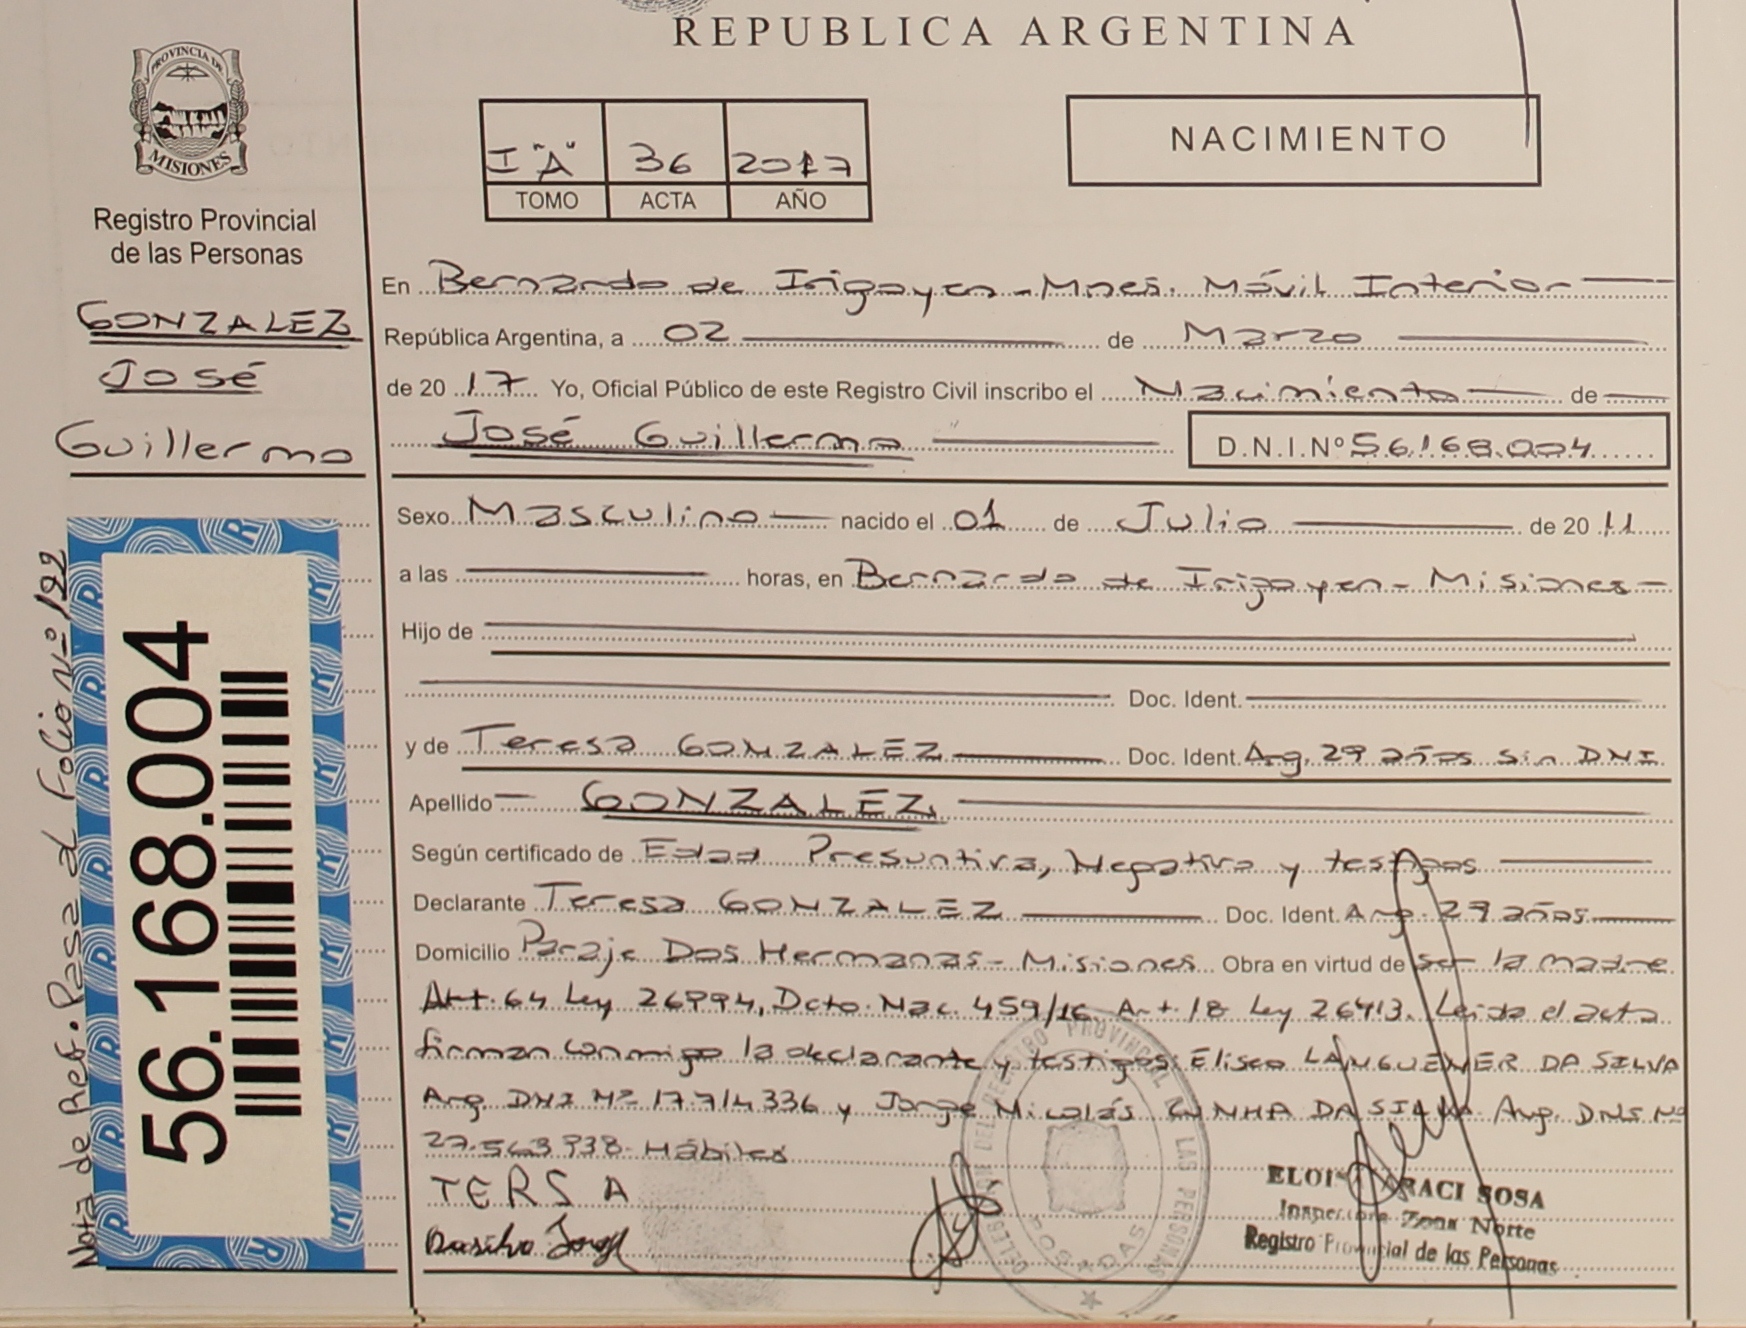 REPUBLICA ARGENTINA
PROVINCIA DE
MISIONES
Registro Provincial
de las Personas
GONZALEZ
José
Guillermo
Nota de Ref. Pasa al Folio Nº 122
56.168.004
I "A" 36 2017
TOMO ACTA AÑO
NACIMIENTO
En Bernardo de Irigoyen - Mnes. Móvil Interior
República Argentina, a 02 de Marzo
de 2017 Yo, Oficial Público de este Registro Civil inscribo el Nacimiento de
José Guillermo D.N.I.Nº 56.168.004
Sexo Masculino nacido el 01 de Julio de 2011
a las horas, en Bernardo de Irigoyen - Misiones
Hijo de
Doc. Ident.
y de Teresa GONZALEZ Doc. Ident. Arg. 29 años sin DNI
Apellido GONZALEZ
Según certificado de Edad Presuntiva, Negativa y testigos
Declarante Teresa GONZALEZ Doc. Ident. Arg. 29 años
Domicilio Paraje Dos Hermanas - Misiones Obra en virtud de ser la madre
Art. 64 Ley 26994, Dcto. Nac. 459/16 Art. 18 Ley 26413. Leida el acta
firman conmigo la declarante y testigos: Eliseo LANGUENER DA SILVA
Arg. DNI Nº 17.714.336 y Jorge Nicolás CUNHA DA SILVA Arg. DNI Nº
27.563.938 Hábiles
TERSA
Dasilva Jorge
DEL REGISTRO PROVINCIAL DE LAS PERSONAS
POSADAS
ARACI SOSA
Zona Norte
Registro Provincial de las Personas